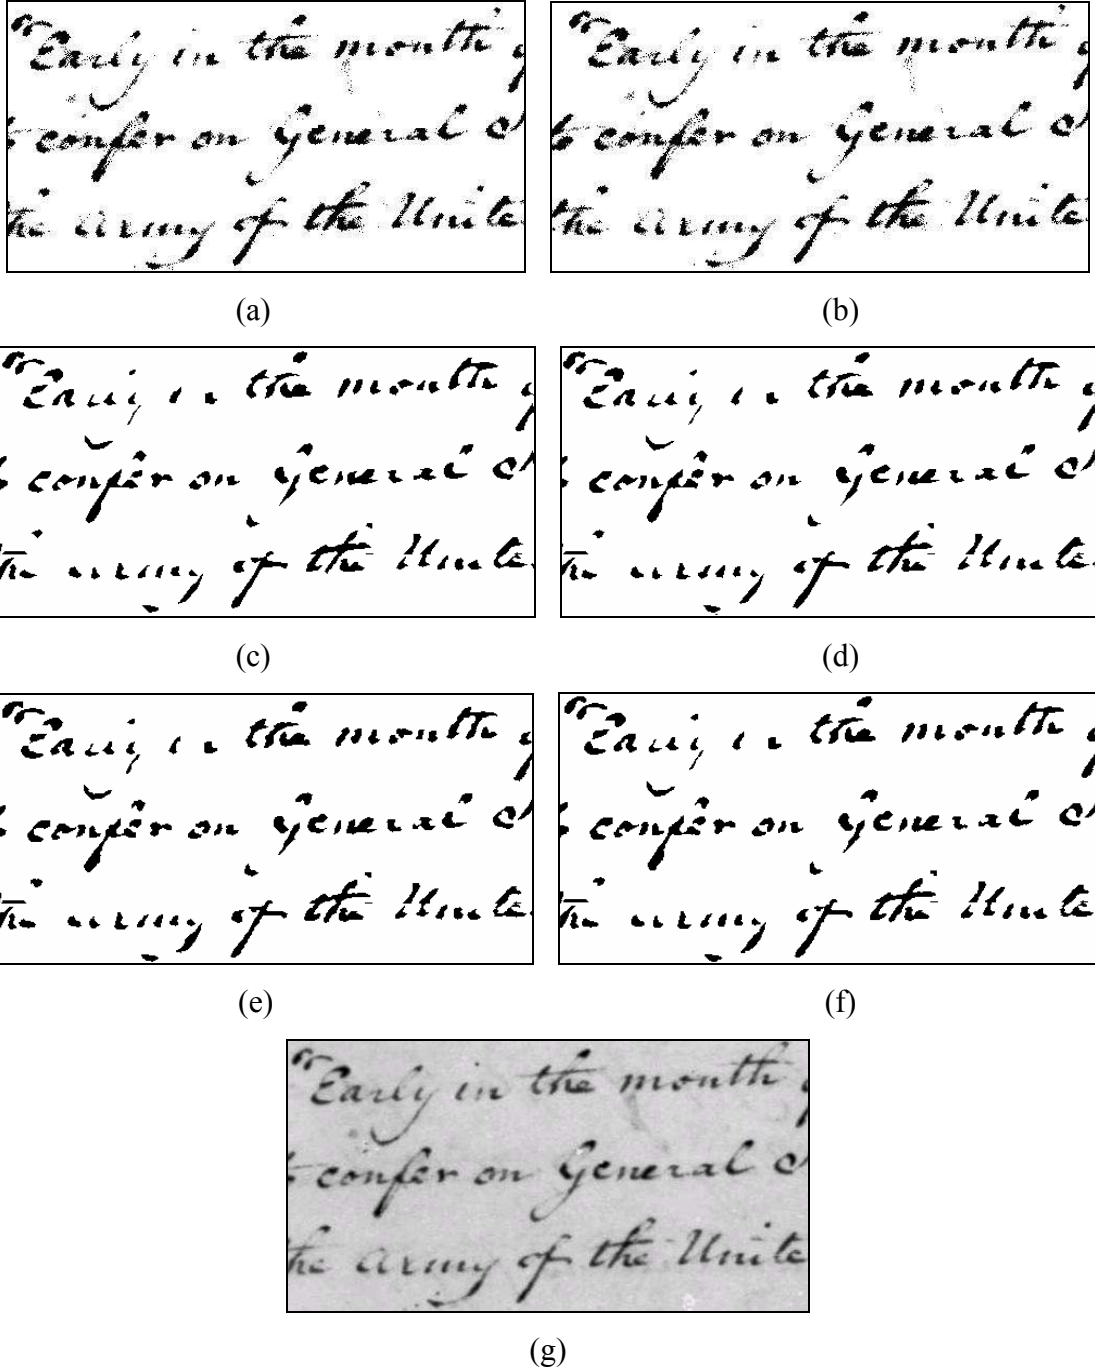 Early in the month
confer on General
the Army of the Unite
(a)
Early in the month
to confer on General
the Army of the Unite
(b)
Early in the month
confer on General
the Army of the Unite
(c)
Early in the month
confer on General
the Army of the Unite
(d)
Early in the month
confer on General
the Army of the Unite
(e)
Early in the month
confer on General
the Army of the Unite
(f)
Early in the month
confer on General
the Army of the Unite
(g)